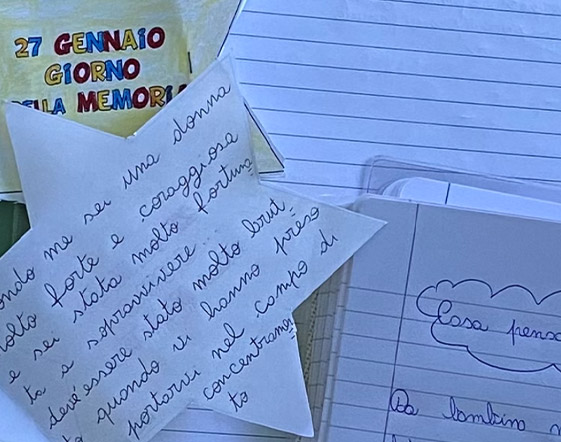 27 GENNAIO
GIORNO
DELLA MEMORIA
ondo me sei una donna
olto forte e coraggiosa
e sei stata molto fortuna
ta a sopravvivere.
deve essere stato molto brut
to quando vi hanno preso
portarvi nel campo di
concentramen
to
Cosa pensa
Da bambino